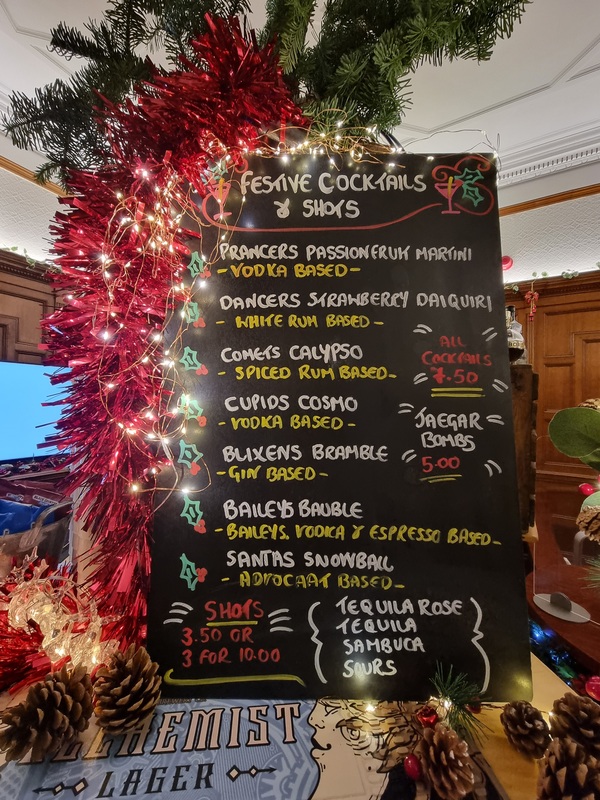 FESTIVE COCKTAILS
& SHOTS
PRANCERS PASSIONFRUIT MARTINI
- VODKA BASED -
DANCERS STRAWBERRY DAIQUIRI
- WHITE RUM BASED -
COMETS CALYPSO
- SPICED RUM BASED -
CUPIDS COSMO
- VODKA BASED -
BLIXENS BRAMBLE
- GIN BASED -
BAILEYS BAUBLE
- BAILEYS, VODKA & ESPRESSO BASED -
SANTAS SNOWBALL
- ADVOCAAT BASED -
ALL
COCKTAILS
7.50
JAEGAR
BOMBS
5.00
SHOTS
3.50 OR
3 FOR 10.00
TEQUILA ROSE
TEQUILA
SAMBUCA
SOURS
ALCHEMIST
LAGER